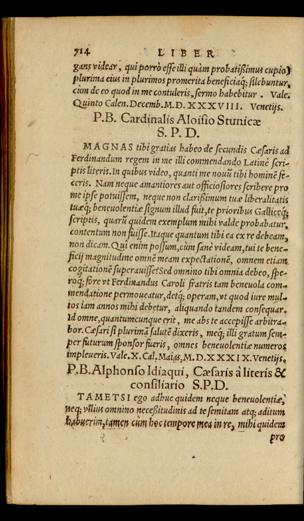 714 LIBER
gans videar, qui porrò esse illi quàm probatißimus cupio)
plurima eius in plurimos promerita beneficiaq; silebuntur,
cùm de eo quod in me contuleris, sermo habebitur. Vale.
Quinto Calen. Decemb. M.D.XXXVIII. Venetijs.
P.B. Cardinalis Aloisio Stunicæ
S. P. D.
MAGNAS tibi gratias habeo de secundis Cæsaris ad
Ferdinandum regem in me illi commendando Latinè scri-
ptis literis. In quibus video, quanti me nouū tibi hominē fe-
ceris. Nam neque amantiores aut officiosiores scribere pro
me ipse potuissem, neque non clarißimum tuæ liberalitatis
tuæq; beneuolentiæ signum illud fuit, te prioribus Gallicęq;
scriptis, quarū quidem exemplum mihi valde probabatur,
contentum non fuisse. Itaque quantum tibi ea ex re debeam,
non dicam. Qui enim possum, cùm sanè videam, tui te bene-
ficij magnitudine omnē meam expectationē, omnem etiam
cogitationē superauisse? Sed omnino tibi omnia debeo, spe-
roq; fore vt Ferdinandus Caroli fratris tam beneuola com-
mendatione permoueatur, detq; operam, vt quod iure mul-
tos iam annos mihi debetur, aliquando tandem consequar.
Id omne, quantumcunque erit, me abs te accepisse arbitra-
bor. Cæsari si plurimā salutē dixeris, meq; illi gratum sem-
per futurum sponsor fueris, omnes beneuolentiæ numeros
impleueris. Vale. X. Cal. Maias, M.D.XXXIX. Venetijs.
P.B. Alphonso Idiaqui, Cæsaris à literis &
consiliario S.P.D.
TAMETSI ego adhuc quidem neque beneuolentiæ,
neq; vllius omnino neceßitudinis ad te semitam atq; aditum
habuerim, tamen cùm hoc tempore mea in re, mihi quidem
pro